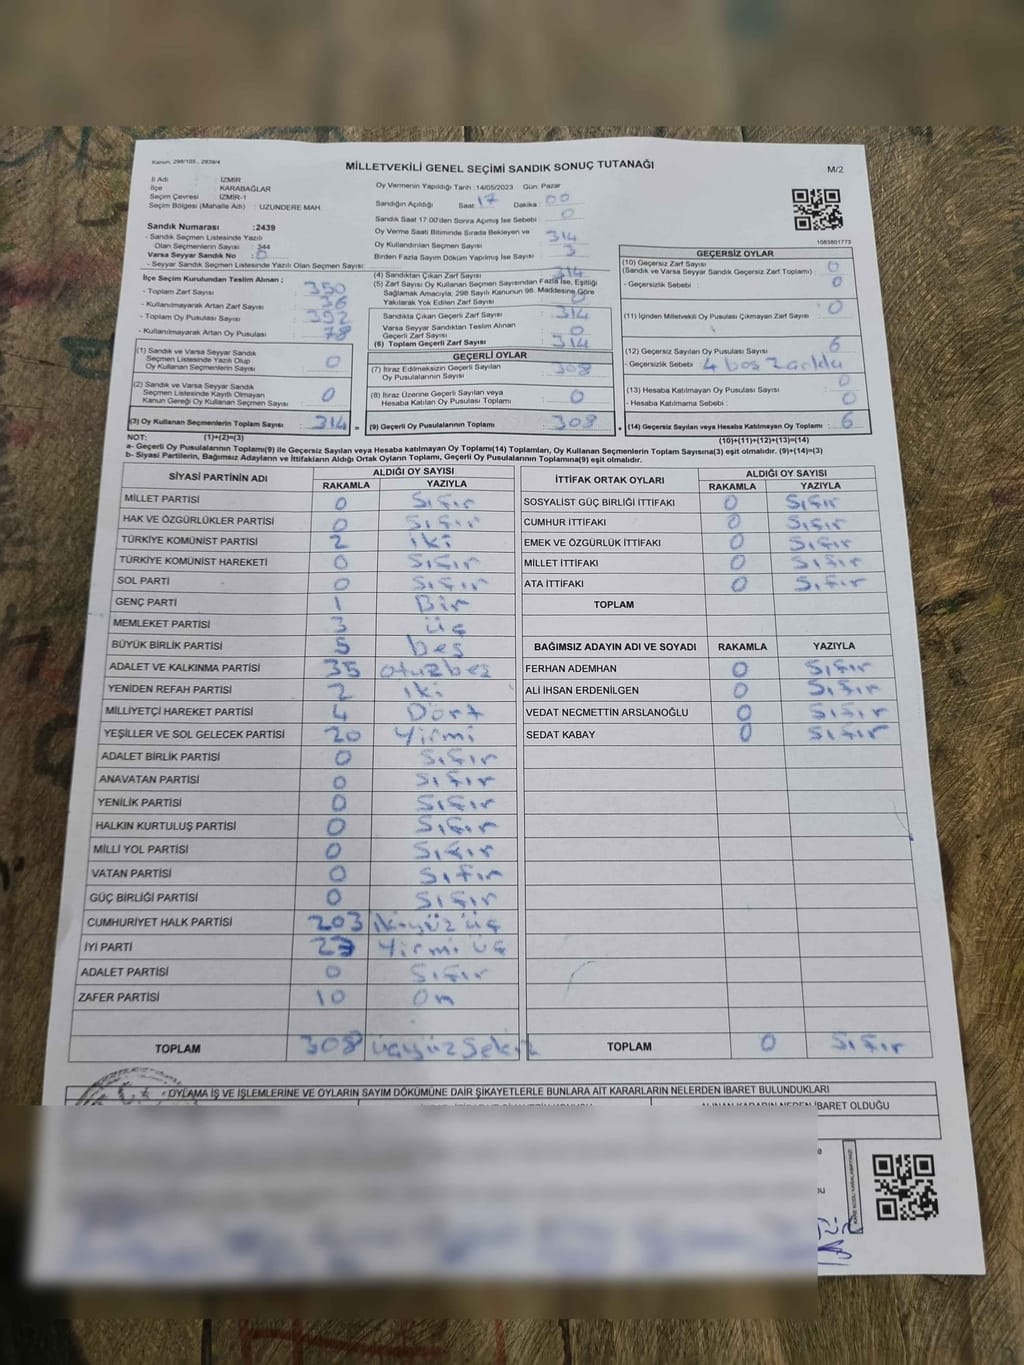 Kanun: 298/105 , 2839/4
MİLLETVEKİLİ GENEL SEÇİMİ SANDIK SONUÇ TUTANAĞI
M/2
İl Adı : İZMİR
İlçe : KARABAĞLAR
Seçim Çevresi : İZMİR-1
Seçim Bölgesi (Mahalle Adı) : UZUNDERE MAH.
Sandık Numarası :2439
- Sandık Seçmen Listesinde Yazılı
Olan Seçmenlerin Sayısı : 344
Varsa Seyyar Sandık No : 0
- Seyyar Sandık Seçmen Listesinde Yazılı Olan Seçmen Sayısı:
Oy Vermenin Yapıldığı Tarih :14/05/2023 Gün: Pazar
Sandığın Açıldığı Saat 17 Dakika : 00
Sandık Saat 17:00'den Sonra Açmış İse Sebebi : 0
Oy Verme Saati Bitiminde Sırada Bekleyen ve
Oy Kullandırılan Seçmen Sayısı
314
Birden Fazla Sayım Döküm Yapılmış İse Sayısı : 3
1083801773
İlçe Seçim Kurulundan Teslim Alınan ;
- Toplam Zarf Sayısı : 350
- Kullanılmayarak Artan Zarf Sayısı :
- Toplam Oy Pusulası Sayısı :
- Kullanılmayarak Artan Oy Pusulası : 78
(1) Sandık ve Varsa Seyyar Sandık
Seçmen Listesinde Yazılı Olup
Oy Kullanan Seçmenlerin Sayısı : 0
(2) Sandık ve Varsa Seyyar Sandık
Seçmen Listesinde Kayıtlı Olmayan
Kanun Gereği Oy Kullanan Seçmen Sayısı : 0
(3) Oy Kullanan Seçmenlerin Toplam Sayısı : 314 =
(4) Sandıktan Çıkan Zarf Sayısı : 314
(5) Zarf Sayısı Oy Kullanan Seçmen Sayısından Fazla İse, Eşitliği
Sağlamak Amacıyla; 298 Sayılı Kanunun 98. Maddesine Göre
Yakılarak Yok Edilen Zarf Sayısı :
Sandıkta Çıkan Geçerli Zarf Sayısı : 314
Varsa Seyyar Sandıktan Teslim Alınan
Geçerli Zarf Sayısı : 0
(6) Toplam Geçerli Zarf Sayısı : 314
GEÇERLİ OYLAR
(7) İtiraz Edilmeksizin Geçerli Sayılan
Oy Pusulalarının Sayısı : 308
(8) İtiraz Üzerine Geçerli Sayılan veya
Hesaba Katılan Oy Pusulası Toplamı : 0
(9) Geçerli Oy Pusulalarının Toplamı : 308 +
GEÇERSİZ OYLAR
(10) Geçersiz Zarf Sayısı
(Sandık ve Varsa Seyyar Sandık Geçersiz Zarf Toplamı) : 0
- Geçersizlik Sebebi : 0
(11) İçinden Milletvekili Oy Pusulası Çıkmayan Zarf Sayısı : 0
(12) Geçersiz Sayılan Oy Pusulası Sayısı : 6
- Geçersizlik Sebebi : 4 boş
(13) Hesaba Katılmayan Oy Pusulası Sayısı : 0
- Hesaba Katılmama Sebebi : 0
(14) Geçersiz Sayılan veya Hesaba Katılmayan Oy Toplamı : 6
NOT: (1)+(2)=(3)
(10)+(11)+(12)+(13)=(14)
a- Geçerli Oy Pusulalarının Toplamı(9) ile Geçersiz Sayılan veya Hesaba Katılmayan Oy Toplamı(14) Toplamları, Oy Kullanan Seçmenlerin Toplam Sayısına(3) eşit olmalıdır. (9)+(14)=(3)
b- Siyasi Partilerin, Bağımsız Adayların ve İttifakların Aldığı Ortak Oyların Toplamı, Geçerli Oy Pusulalarının Toplamına(9) eşit olmalıdır.
SİYASİ PARTİNİN ADI ALDIĞI OY SAYISI
RAKAMLA YAZIYLA
MİLLET PARTİSİ 0 Sıfır
HAK VE ÖZGÜRLÜKLER PARTİSİ 0 Sıfır
TÜRKİYE KOMÜNİST PARTİSİ 2 iki
TÜRKİYE KOMÜNİST HAREKETİ 0 Sıfır
SOL PARTİ 0 Sıfır
GENÇ PARTİ 1 Bir
MEMLEKET PARTİSİ 3 üç
BÜYÜK BİRLİK PARTİSİ 5 beş
ADALET VE KALKINMA PARTİSİ 35 otuzbeş
YENİDEN REFAH PARTİSİ 2 iki
MİLLİYETÇİ HAREKET PARTİSİ 4 Dört
YEŞİLLER VE SOL GELECEK PARTİSİ 20 Yirmi
ADALET BİRLİK PARTİSİ 0 Sıfır
ANAVATAN PARTİSİ 0 Sıfır
YENİLİK PARTİSİ 0 Sıfır
HALKIN KURTULUŞ PARTİSİ 0 Sıfır
MİLLİ YOL PARTİSİ 0 Sıfır
VATAN PARTİSİ 0 Sıfır
GÜÇ BİRLİĞİ PARTİSİ 0 Sıfır
CUMHURİYET HALK PARTİSİ 203 ikiyüz üç
İYİ PARTİ 23 Yirmi üç
ADALET PARTİSİ 0 Sıfır
ZAFER PARTİSİ 10 On
TOPLAM 308 üçyüzSekiz
İTTİFAK ORTAK OYLARI ALDIĞI OY SAYISI
RAKAMLA YAZIYLA
SOSYALİST GÜÇ BİRLİĞİ İTTİFAKI 0 Sıfır
CUMHUR İTTİFAKI 0 Sıfır
EMEK VE ÖZGÜRLÜK İTTİFAKI 0 Sıfır
MİLLET İTTİFAKI 0 Sıfır
ATA İTTİFAKI 0 Sıfır
TOPLAM
BAĞIMSIZ ADAYIN ADI VE SOYADI RAKAMLA YAZIYLA
FERHAN ADEMHAN 0 Sıfır
ALİ İHSAN ERDENİLGEN 0 Sıfır
VEDAT NECMETTİN ARSLANOĞLU 0 Sıfır
SEDAT KABAY 0 Sıfır
TOPLAM 0 Sıfır
OYLAMA İŞ VE İŞLEMLERİNE VE OYLARIN SAYIM DÖKÜMÜNE DAİR ŞİKAYETLERLE BUNLARA AİT KARARLARIN NELERDEN İBARET BULUNDUKLARI
ALINAN KARARIN NEDEN İBARET OLDUĞU